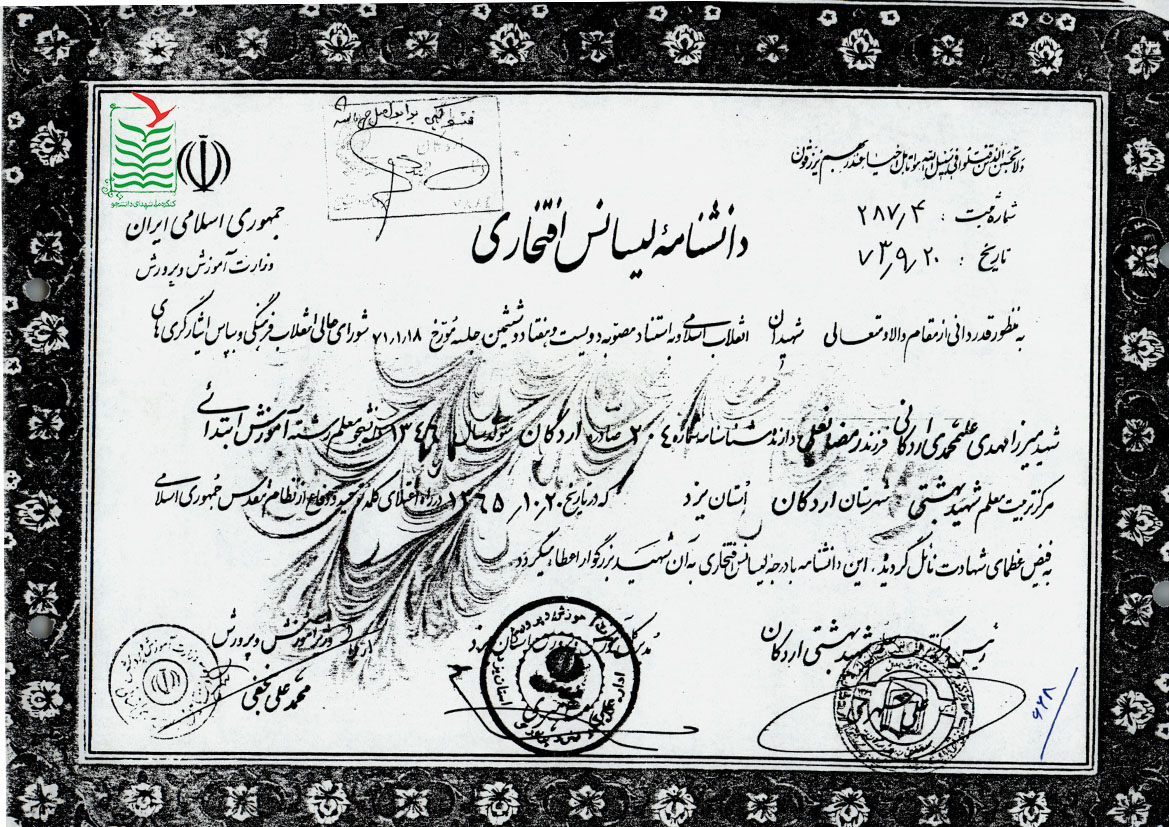 ولا تحسبن الذین قتلوا فی سبیل الله امواتا بل احیاء عند ربهم یرزقون
کنگره ملی شهدای دانشجو
جمهوری اسلامی ایران
وزارت آموزش و پرورش
شماره ثبت : ۲۸۷/۴
تاریخ : ۷۳/۹/۲۰
دانشنامه لیسانس افتخاری
به منظور قدردانی از مقام والا و متعالی شهیدان انقلاب اسلامی و به استناد مصوبه دویست و هفتاد و ششمین جلسه مورخ ۷۱/۱/۱۸ شورای عالی انقلاب فرهنگی و بپاس ایثارگری های
شهید میرزا مهدی علیمحمدی اردکانی فرزند رمضانعلی دارنده شناسنامه شماره ۲۰۴ صادره اردکان متولد سال دانشجو معلم رشته آموزش ابتدائی
مرکز تربیت معلم شهید بهشتی شهرستان اردکان استان یزد که در تاریخ ۱۳۶۵/۱۰/۲۰ در راه اعتلای کلمه توحید و دفاع از نظام مقدس جمهوری اسلامی
به فیض عظمای شهادت نائل گردید. این دانشنامه با درجه لیسانس افتخاری به آن شهید بزرگوار اعطاء میگردد
رئیس شهید بهشتی اردکان
مدیر کل آموزش و پرورش استان یزد
وزیر آموزش و پرورش
محمد علی نجفی
۶۲۸